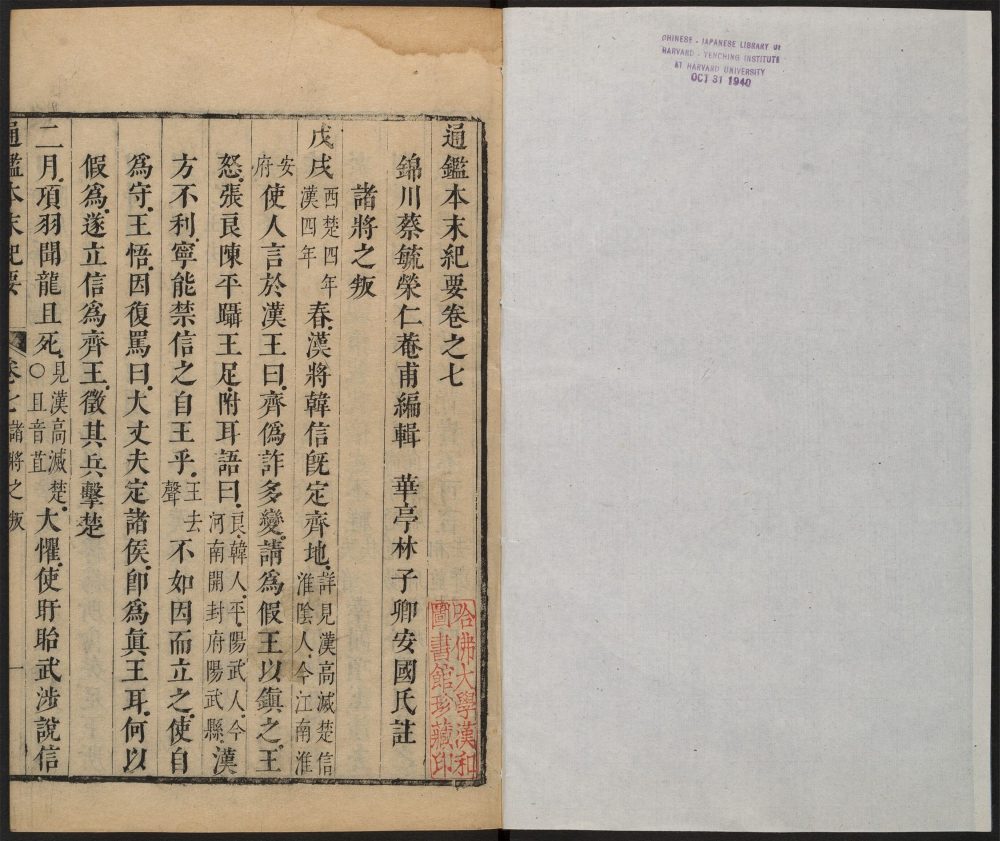 CHINESE - JAPANESE LIBRARY OF
HARVARD - YENCHING INSTITUTE
AT HARVARD UNIVERSITY
OCT 31 1940
通鑑本末紀要卷之七
錦川蔡毓榮仁菴甫編輯　華亭林子卿安國氏註
哈佛大學漢和
圖書館珍藏印
諸將之叛
戊戌西楚四年漢四年春漢將韓信旣定齊地詳見漢高滅楚信淮陰人今江南淮
安府使人言於漢王曰齊僞詐多變請爲假王以鎭之王
怒張良陳平躡王足附耳語曰良韓人平陽武人今河南開封府陽武縣漢
方不利寧能禁信之自王乎王去聲不如因而立之使自
爲守王悟因復罵曰大丈夫定諸侯卽爲眞王耳何以
假爲遂立信爲齊王徵其兵擊楚
二月項羽聞龍且死見漢高滅楚○且音苴大懼使盱眙武涉說信
通鑑本末紀要　卷七　諸將之叛　一